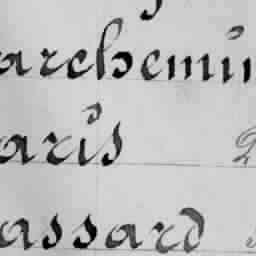 archemin
aris
assard